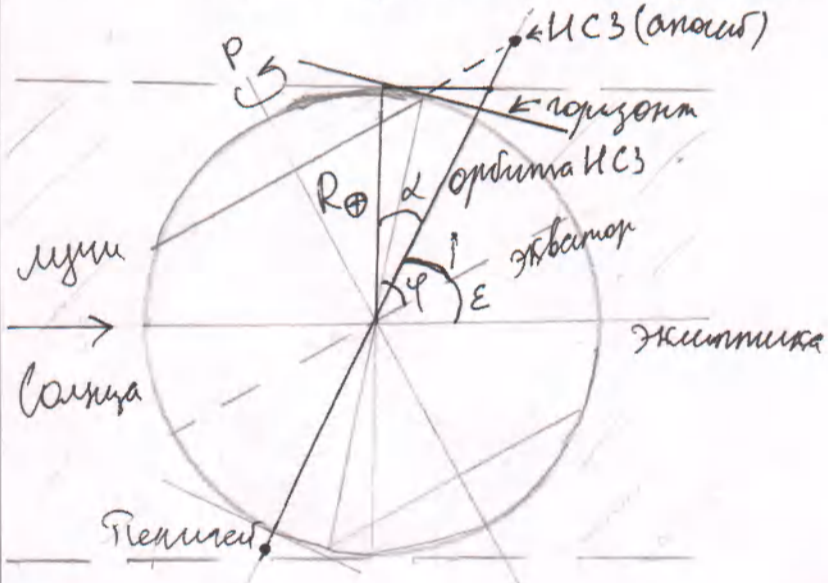 ИСЗ (апогей)
P
горизонт
R⊕
α
орбита ИСЗ
i
экватор
φ
ε
лучи
Солнца
эклиптика
Перигей